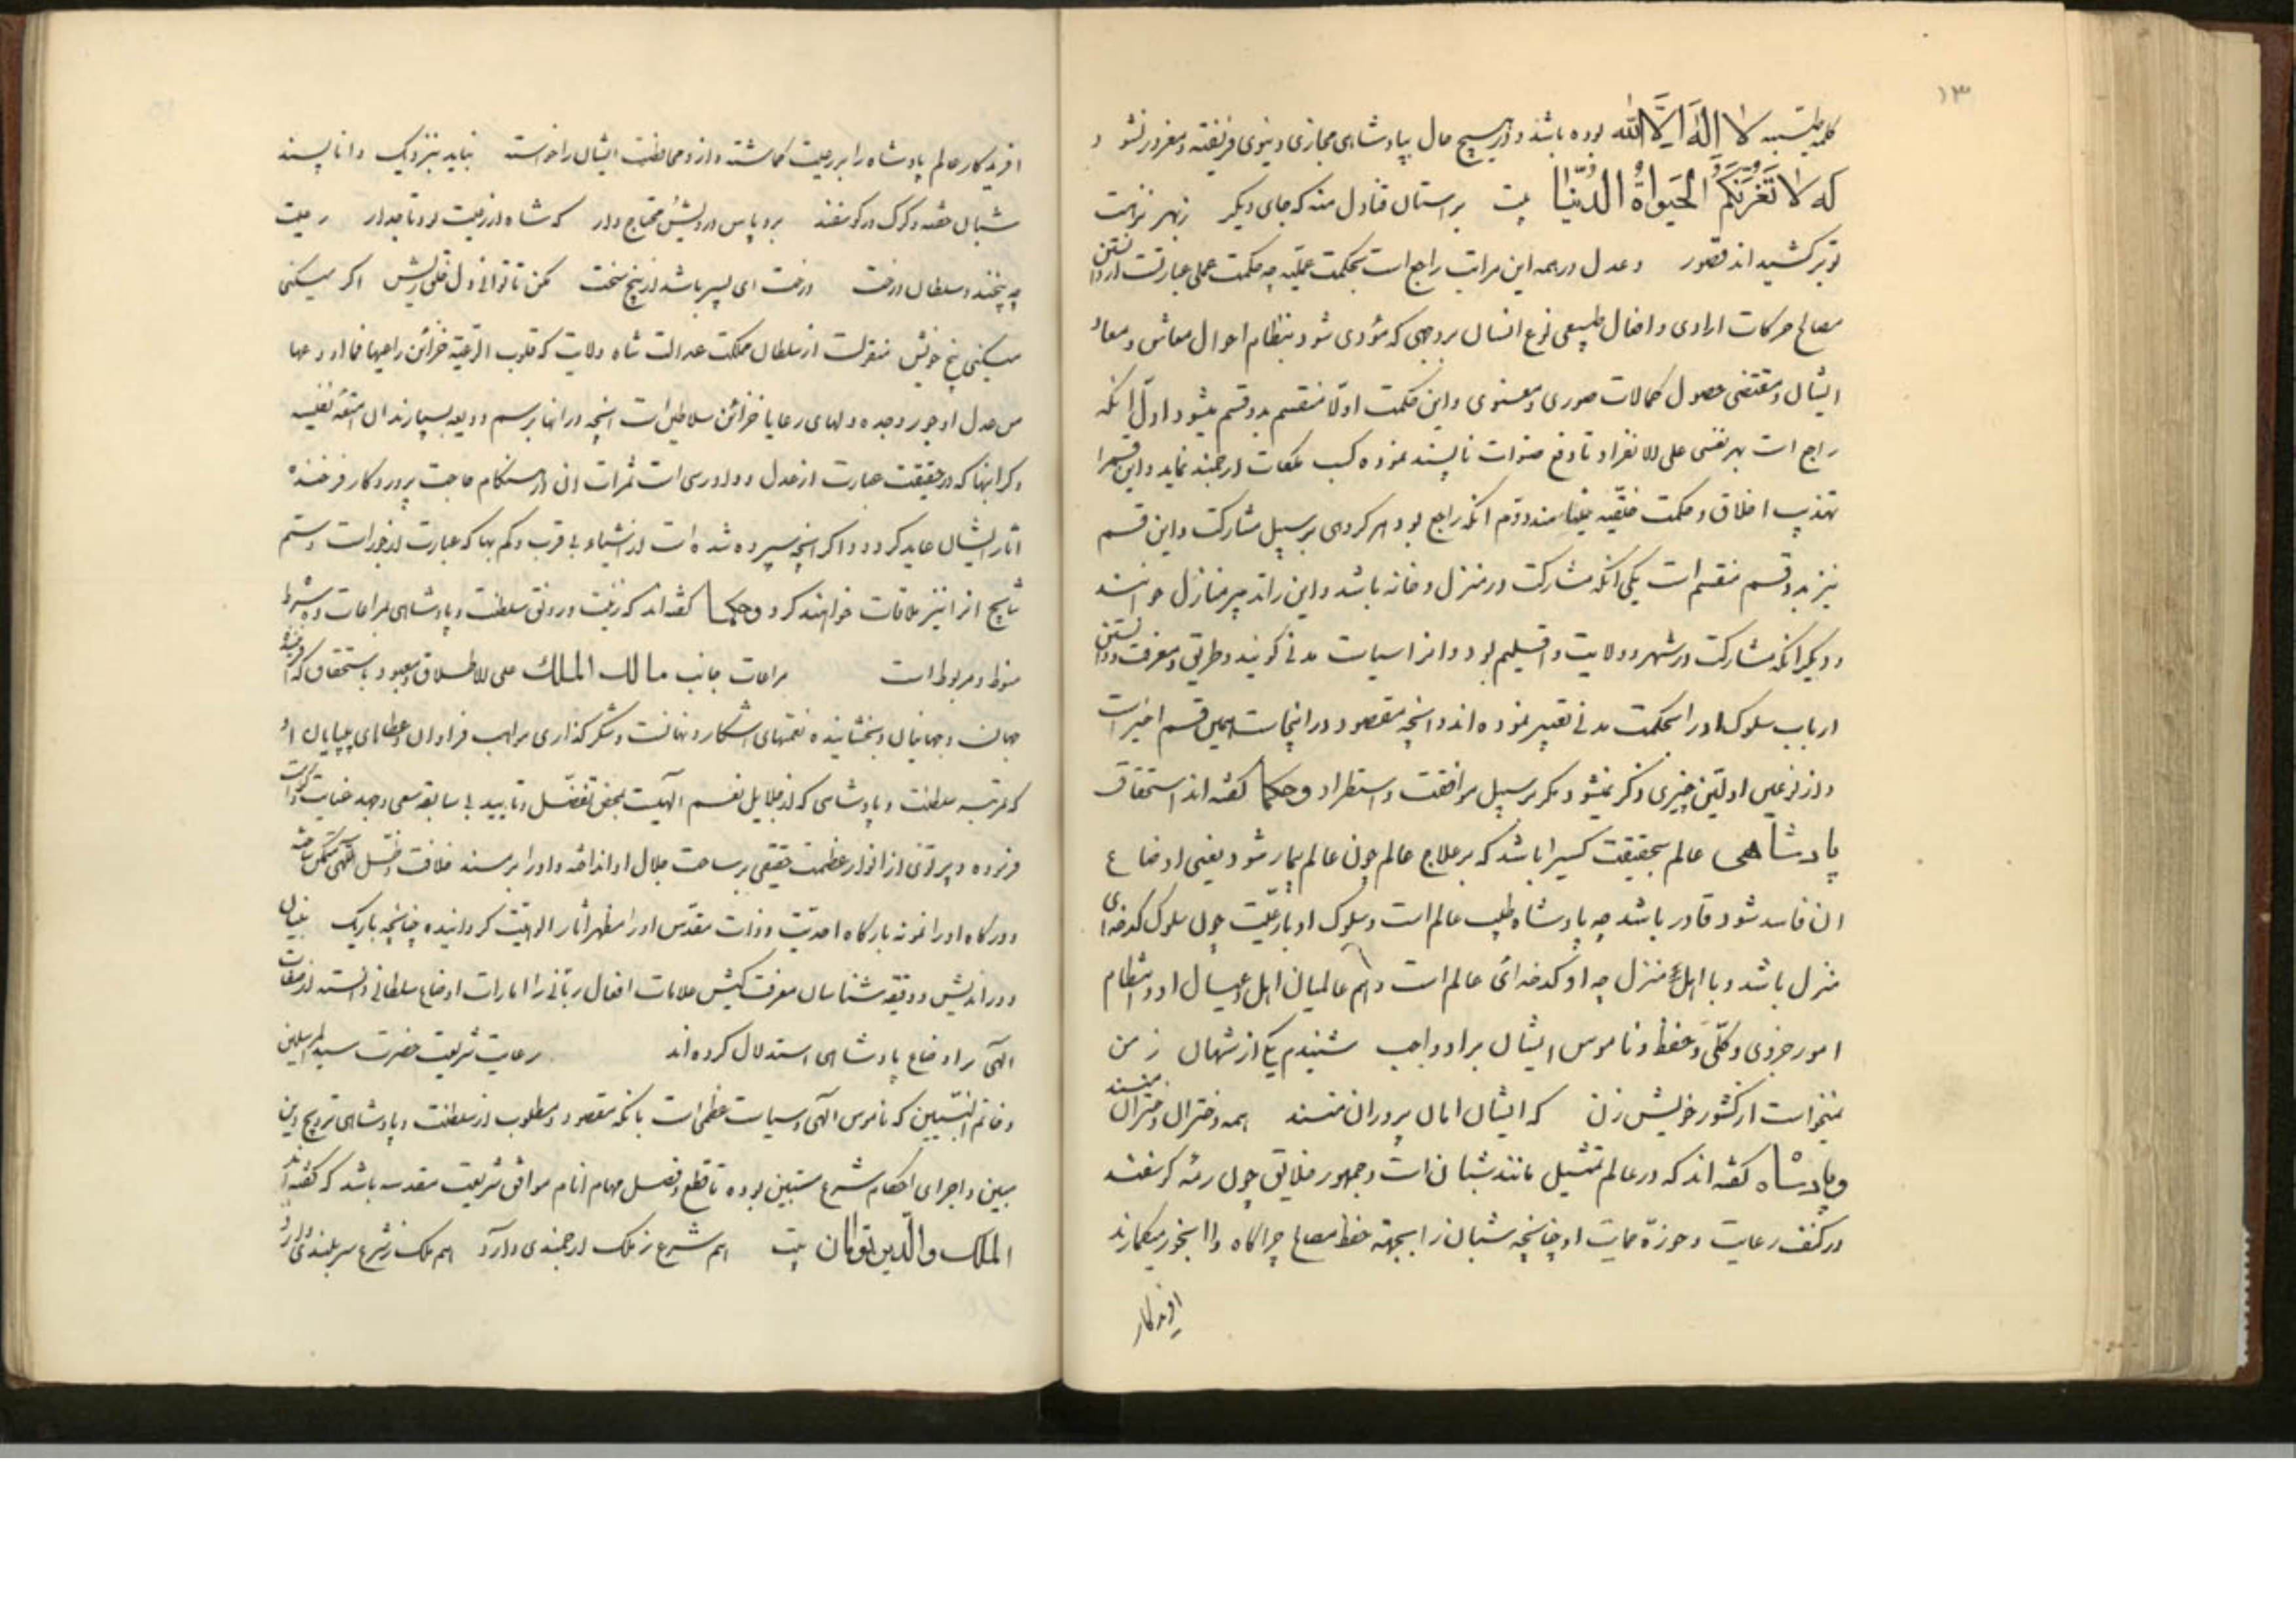 ۱۳
کلمه طیبه لا اِلٰهَ اِلَّا اللّٰه بوده باشد و در هیچ حال بپادشاهی مجازی دنیوی فریفته و مغرور نشود و
که لا تَغُرَّنَّکُمُ الحَیوٰةُ الدُّنیا بیت بر استان فنا دل منه که جای دیکر زبهر نزهت
تو برکشیده اند قصور و عدل در همه این مراتب راجع است بحکمت عملیه چه حکمت عملی عبارتست از دانستن
مصالح حرکات ارادی و افعال طبیعی نوع انسان بر وجهی که مؤدی شود بنظام احوال معاش و معاد
ایشان و مقتضی حصول کمالات صوری و معنوی و این حکمت اولا منقسم بدو قسم میشود اول انکه
راجع است بهر نفسی علی الانفراد تا دفع صفات ناپسند نموده کسب ملکات ارجمند نماید و این قسم را
تهذیب اخلاق و حکمت خلقیه مینامند دوم انکه راجع بود بهر کروهی بر سبیل مشارکت و این قسم
نیز بدو قسم منقسم است یکی انکه مشارکت در منزل و خانه باشد و این را تدبیر منازل خوانند
و دیکر انکه مشارکت در شهر و ولایت و اقلیم بود و انرا سیاست مدنی کویند و طریق و معرفت دانستن
ارباب سلوک او را بحکمت مدنی تعبیر نموده اند و انچه مقصود در اینجاست همین قسم اخیر است
و از نوعین اولین چیزی ذکر نمیشود مکر بر سبیل موافقت و استطراد و حکما کفته اند استحقاق
پادشاهی عالم بحقیقت کسیرا باشد که بر علاج عالم چون عالم بیمار شود یعنی اوضاع
ان فاسد شود قادر باشد چه پادشاه طبیب عالم است و سلوک او با رعیت چون سلوک کدخدای
منزل باشد و با اهل منزل چه او کدخدای عالم است و هم عالمیان اهل و عیال او و انتظام
امور جزوی و کلی و حفظ و ناموس ایشان بر او واجب شنیدم یکی از شهان زمن
نمیخواست از کشور خویش زن که ایشان امان پروران منند همه دختران دختران منند
و پادشاه کفته اند که در عالم تمثیل مانند شبانست و جمهور خلایق چون رمه کوسفند
در کنف رعایت و حوزه حمایت او چنانچه شبان را بجهة حفظ مصالح چراکاه و ابخور میکمارند
افریدکار
افریدکار عالم پادشاه را بر رعیت کماشته و از و محافظت ایشان را خواسته نباید بنزدیک دانا پسند
شبان خفته و کرک در کوسفند برو پاس درویش محتاج دار که شاه از رعیت بود تاجدار رعیت
چه بیخند و سلطان درخت درخت ای پسر باشد از بیخ سخت مکن تا توانی دل خلق ریش اکر میکنی
میکنی بیخ خویش منقولست از سلطان مملکت عدالت شاه ولایت که قلوب الرعیة خزائن راعیها فما اودعها
من عدل او جور وجده دلهای رعایا خزائن سلاطین است انچه در انها برسم ودیعه بسپارند ان امتعه نفیسه
و کرانبها که در حقیقت عبارت از عدل و دادرسی است ثمرات ان در هنکام حاجت بروزکار فرخنده
اثار ایشان عاید کردد و اکر انچه سپرده شده است از اشیاء بی قرب و کم بها که عبارت از جور است و ستم
نتایج انرا نیز ملاقات خواهند کرد و حکما کفته اند که زینت و رونق سلطنت و پادشاهی بمراعات ده شرط
منوط و مربوط است مراعات جانب مالک الملک علی الاطلاق و معبود باستحقاق که افریننده
جهان و جهانیان و بخشاینده نعمتهای اشکار و نهانست و شکرکذاری مواهب فراوان و عطایای بیپایان او
که مرتبه سلطنت و پادشاهی که از جلایل نعم الهیست بمحض تفضل و تایید بی سابقه سعی و جهد عنایت و کرامت
فرموده و پرتوی از انوار عظمت حقیقی بر ساحت جلال او انداخته و او را بر مسند خلافت و ظل اللهی متمکن ساخته
و درکاه او را نمونه بارکاه احدیت و ذات مقدس او را مظهر اثار الوهیت کردانیده چنانچه باریک بینان
دور اندیش و دقیقه شناسان معرفت کیش علامات افعال ربانی را امارات اوضاع سلطانی دانسته از صفات
الهی بر اوضاع پادشاهی استدلال کرده اند رعایت شریعت حضرت سید المرسلین
و خاتم النبیین که ناموس الهی و سیاست عظمی است بانکه مقصود و مطلوب از سلطنت و پادشاهی ترویج دین
مبین و اجرای احکام شرع مستبین بوده تا قطع و فصل مهام انام موافق شریعت مقدسه باشد که کفته اند
الملک و الدین توامان بیت هم شرع ز ملک ارجمندی دارد هم ملک ز شرع سربلندی دارد